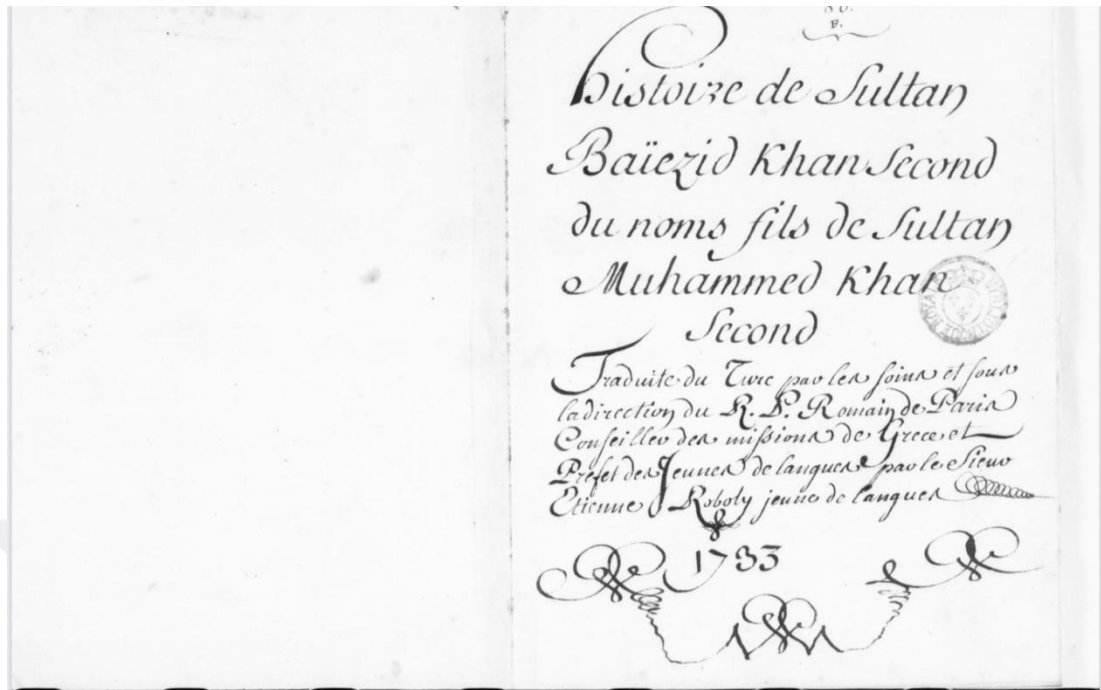 F.
histoire de Sultan
Baïezid Khan Second
du noms fils de Sultan
Muhammed Khan
Second
Traduite du Turc par les soins et sous
la direction du R. P. Romain de Paris
Conseiller des missions de Grece et
Prefet des Jeunes de langues par le Sieur
Etienne Roboly jeune de langues
1733